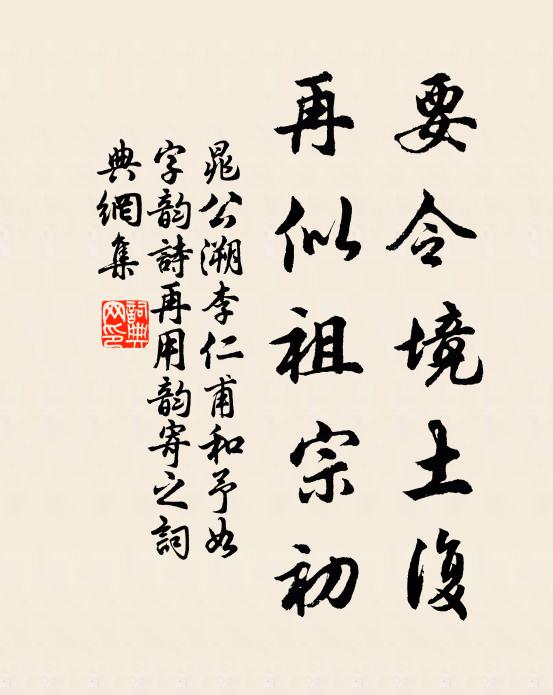 要令境土復
再似祖宗初
晁公溯李仁甫和予如
字韵詩再用韵寄之詞
典網集
詞典網印